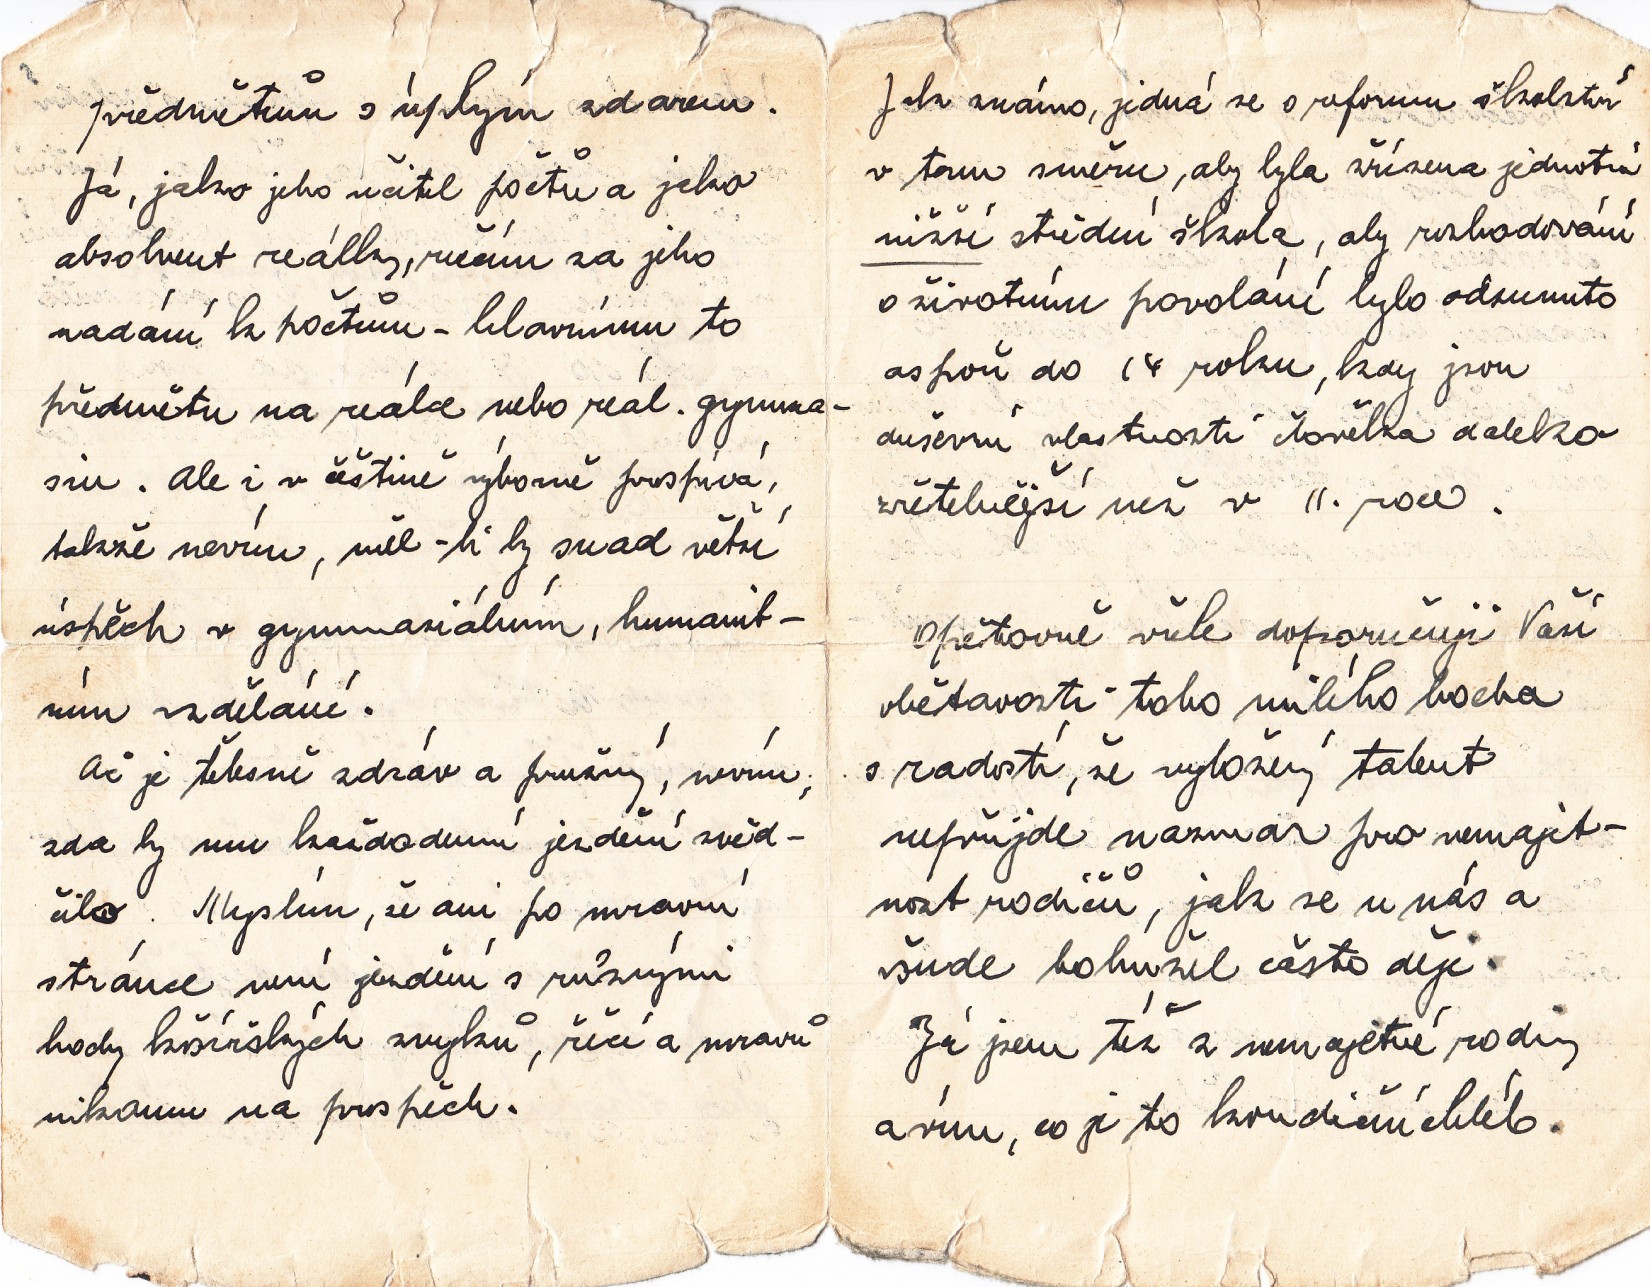 předmětům s úplným zdarem.
Já, jakso jeho učitel počtů a jakso
absolvent reálky, ručím za jeho
nadání k počtům - hlavnímu to
předmětu na reálce nebo reál. gymna-
siu. Ale i v češtině výborně prospívá,
takže nevím, měl-li by snad větší
úspěch v gymnasiálním, humanit-
ním vzdělání.
Ač je tělesně zdráv a pružný, nevím,
zda by mu každodenní jezdění svěd-
čilo. Myslím, že ani po mravní
stránce není jezdění s různými
hochy košířských zvyků, řečí a mravů
nikomu na prospěch.
Jak známo, jedná se o reformu školství
v tom směru, aby byla zřízena jednotná
nižší střední škola, aby rozhodování
o životním povolání bylo odsunuto
aspoň do 14 roku, kdy jsou
duševní vlastnosti člověka daleko
zřetelnější než v 11. roce.
Opětovně vřele doporučuji Vaší
obětavosti toho milého hocha
s radostí, že vyložený talent
nepřijde nazmar pro nemajet-
nost rodičů, jak se u nás a
všude bohužel často děje.
Já jsem též z nemajetné rodiny
a vím, co je to kondiční chléb.